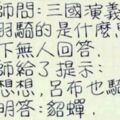 師問:三國演義
羽騎的是什麼馬
下無人回答.
師給了提示:
想想,呂布也騎
明答:貂蟬.